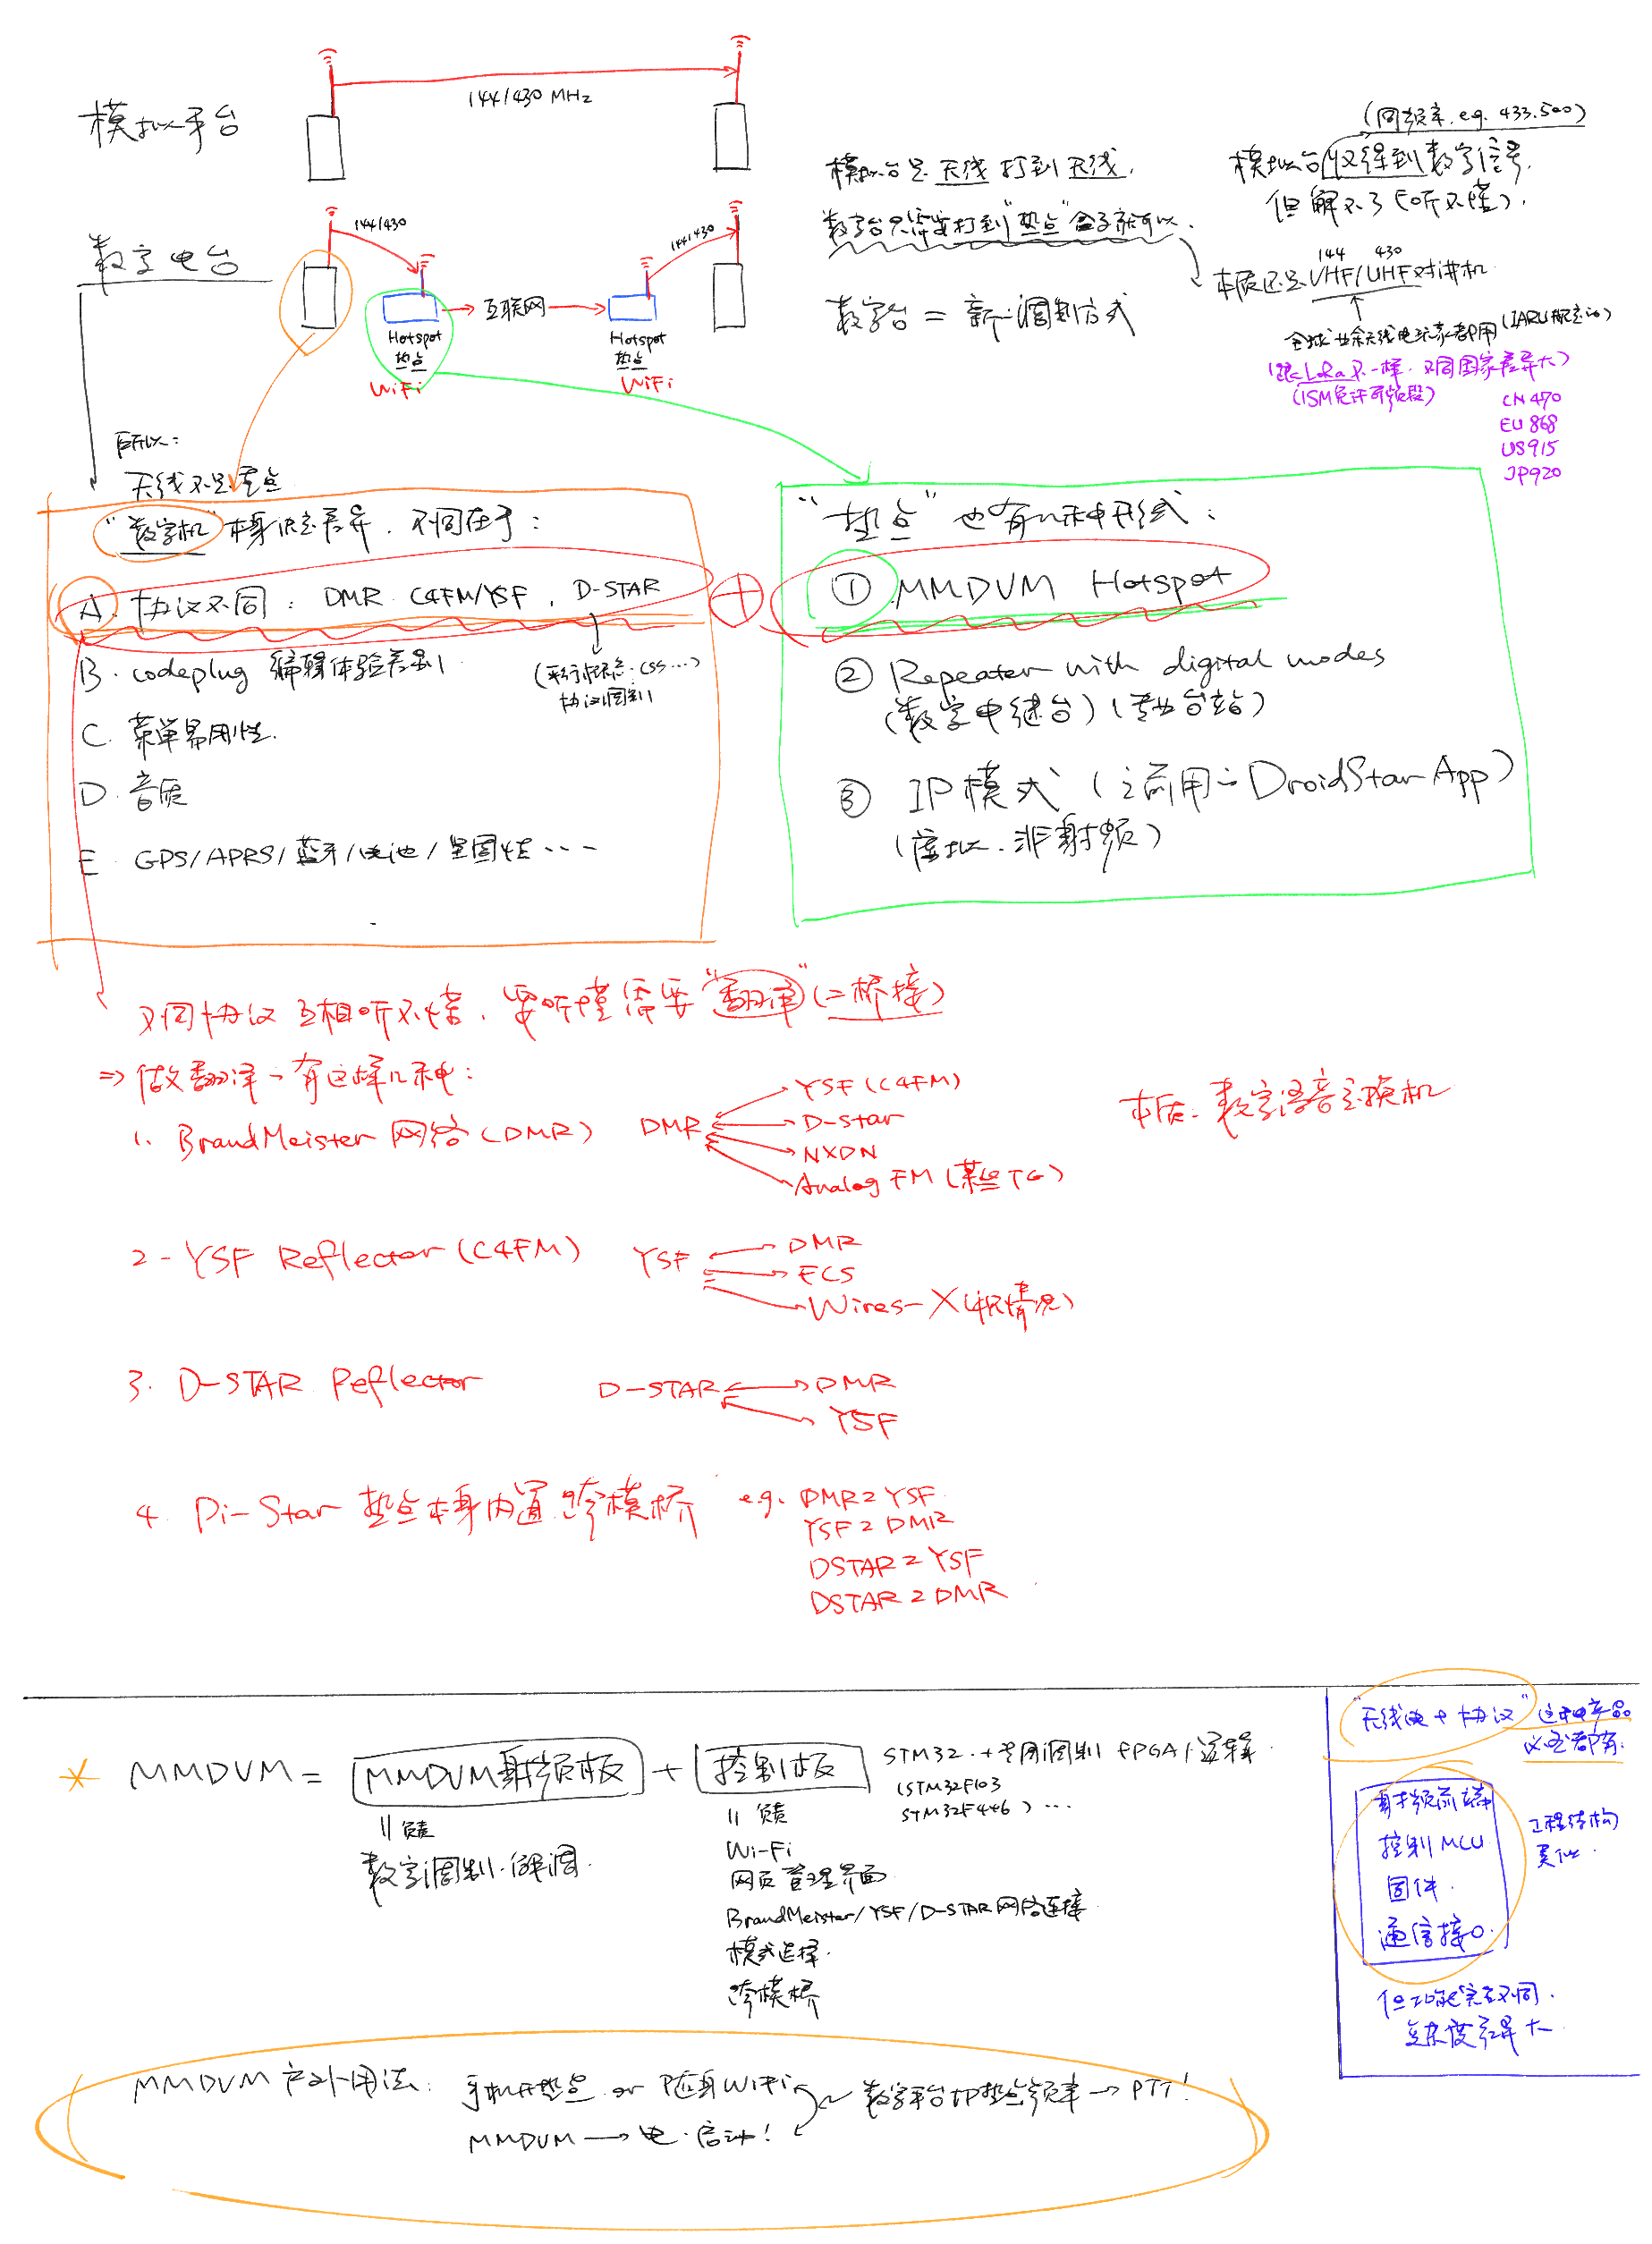 模拟手台
144/430 MHz
(同频率. e.g. 433.500)
模拟台是天线打到天线.
模拟台收得到数字信号.
但解不了(听不懂).
数字电台
144/430
144/430
数字台只需要打到"热点"盒子就可以.
144 430
本质还是VHF/UHF对讲机
互联网
Hotspot
热点
WiFi
Hotspot
热点
WiFi
数字台 = 新调制方式
全球业余无线电玩家都用(IARU规定的)
(跟LoRa不一样. 不同国家差异大)
(ISM免许可频段)
CN 470
EU 868
US 915
JP920
所以:
天线不是重点
"数字机"本身决定差异. 不同在于:
A. 协议不同: DMR. C4FM/YSF, D-STAR
B. codeplug 编辑体验差别
协议调制
C. 菜单易用性.
D. 音质
E GPS/APRS/蓝牙/电池/坚固性...
"热点"也有几种形式:
① MMDVM Hotspot
② Repeater with digital modes
(数字中继台)(专业台站)
③ IP模式 (之前用的DroidStar App)
(虚拟. 非射频)
不同协议互相听不懂. 要听懂需要"翻译"(=桥接)
⇒ 做翻译一有这样几种:
1. BrandMeister 网络 (DMR)
DMR
YSF (C4FM)
D-star
NXDN
Analog FM (某些TG)
本质: 数字语音交换机
2- YSF Reflector (C4FM)
YSF
DMR
FCS
Wires-X (个别情况)
3. D-STAR Reflector
D-STAR
DMR
YSF
4. Pi-Star 热点本身内置跨模桥
e.g. DMR2YSF
YSF2DMR
DSTAR2YSF
DSTAR2DMR
* MMDVM = MMDVM射频板 + 控制板
STM32. + 专用调制 FPGA/逻辑
(STM32F103
STM32F446) ...
|| 负责
数字调制.解调.
|| 负责
Wi-Fi
网页管理界面
BrandMeister/YSF/D-STAR网络连接
模式选择.
跨模桥
"无线电+协议" 这种产品
必定都有.
射频前端
控制MCU
固件.
通信接口.
工程结构
类似.
但功能完全不同.
复杂度差异大
MMDVM 户外用法:
手机开热点 or 随身WiFi
数字手台加热点频率 → PTT!
MMDVM → 电. 启动!